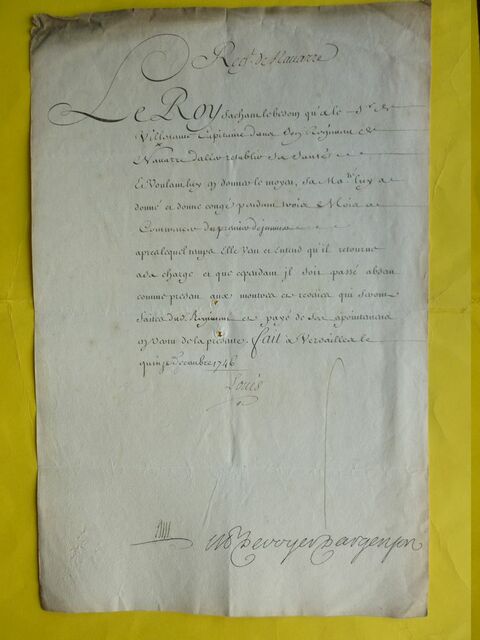 Regt. de Navarre
Le Roy sachant le besoin qu'a le Sr. de
Capitaine dans son Regiment de
Navarre d'aller retablir sa santé
Et voulant luy en donner le moyen, sa Maté. luy a
donné et donne congé pendant trois Mois a
Commencer du premier de janvier
apres lequel temps Elle veut et Entend qu'il retourne
a sa charge et que cependant jl soit passé absent
comme present aux montres et reveües qui seront
faites dud. Regiment et payé de ses apointemens
en vertu de la presente. fait a Versailles le
quinze Decembre 1746
Louis
M P De voyer D'argenson